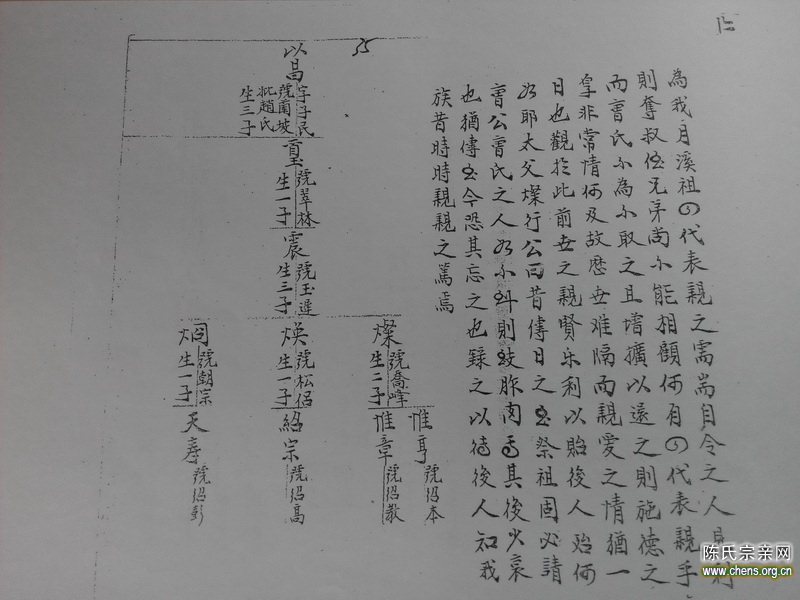 為我月溪祖四代表親之需耑自令之人見利
則奪叔伯兄弟尚不能相顧何有四代表親乎
而曹氏不為不取之且增擴以還之則施德之
拿非常情何及故歷世难隔而親愛之情猶一
日也觀於此前世之親賢乐利以貽後人 何
耶太父燦行公曰昔傳日之 祭祖固必請
曹公曹氏之人 不 則 胙肉 其後少哀
也猶傳 今恐其忘之也錄之以待後人知我
族昔時時親親之篤焉
35
以昌 字子民 號蘭坡 妣趙氏 生三子
號翠林 生一子
震 號玉遲 生三子
燦 號喬峰 生二子
煥 號松侶 生一子
烟 號朝宗 生一子
惟亨 號紹本
惟章 號紹敬
紹宗 號紹高
天彦 號紹彭
陈氏宗亲网
www.chens.org.cn